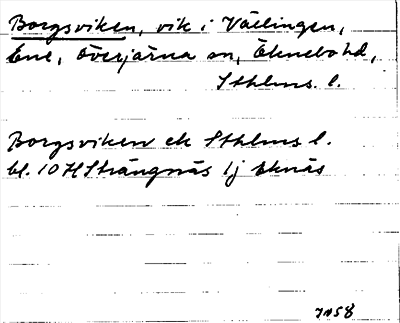 Borgsviken, vik i Vällingen,
Ene, Överjärna sn, Öknebo hd,
Sthlms l.
Borgsviken ek Sthlms l.
bl. 10 H Strängnäs 1j Eknäs